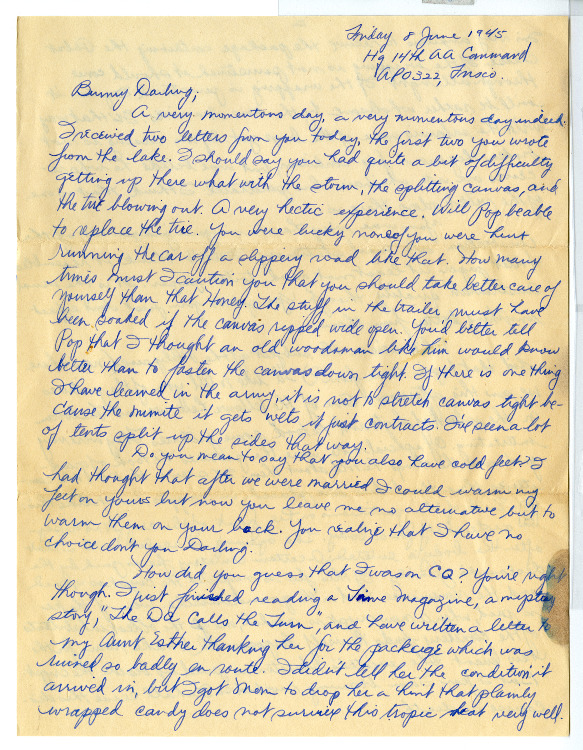 Friday 8 June 1945
Hq 14th AA Command
APO 322, Frisco.
Bunny Darling;
A very momentous day, a very momentous day indeed.
I received two letters from you today, the first two you wrote
from the lake. I should say you had quite a bit of difficulty
getting up there what with the storm, the splitting canvas, and
the tire blowing out. A very hectic experience. Will Pop be able
to replace the tire. You were lucky none of you were hurt
running the car off a slippery road like that. How many
times must I caution you that you should take better care of
yourself than that Honey. The stuff in the trailer must have
been soaked if the canvas ripped wide open. You'd better tell
Pop that I thought an old woodsman like him would know
better than to fasten the canvas down tight. If there is one thing
I have learned in the army, it is not to stretch canvas tight be-
cause the minute it gets wets it just contracts. I've seen a lot
of tents split up the sides that way.
Do you mean to say that you also have cold feet? I
had thought that after we were married I could warm my
feet on yours but now you leave me no alternative but to
warm them on your back. You realize that I have no
choice don't you Darling.
How did you guess that I was on CQ? You're right
though. I just finished reading a magazine, a mystery
story, "The D.A. Calls the Turn", and have written a letter to
my Aunt Esther thanking her for the package which was
ruined so badly en route. I didn't tell her the condition it
arrived in, but I got Mom to drop her a hint that plainly
wrapped candy does not survive this tropic heat very well.